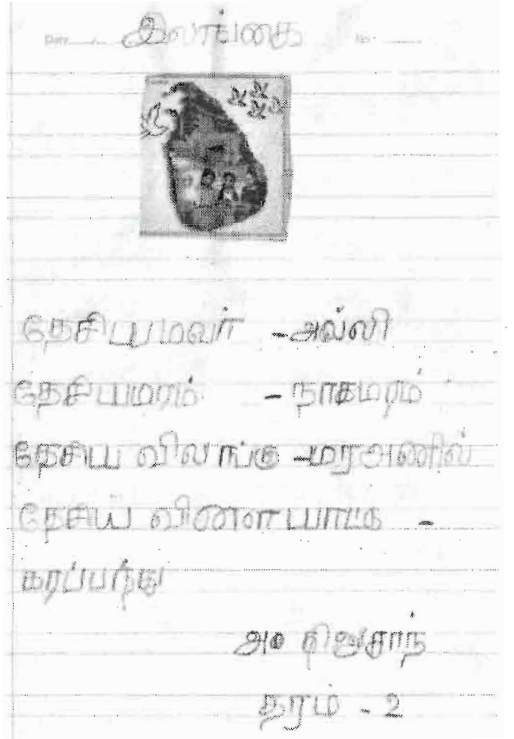 Date இலங்கை No
தேசியமலர் - அல்லி
தேசியமரம் - நாகமரம்
தேசிய விலங்கு - மரஅணில்
தேசிய விளையாட்டு -
கரப்பந்து
அ. தினுசாந்
தரம் - 2